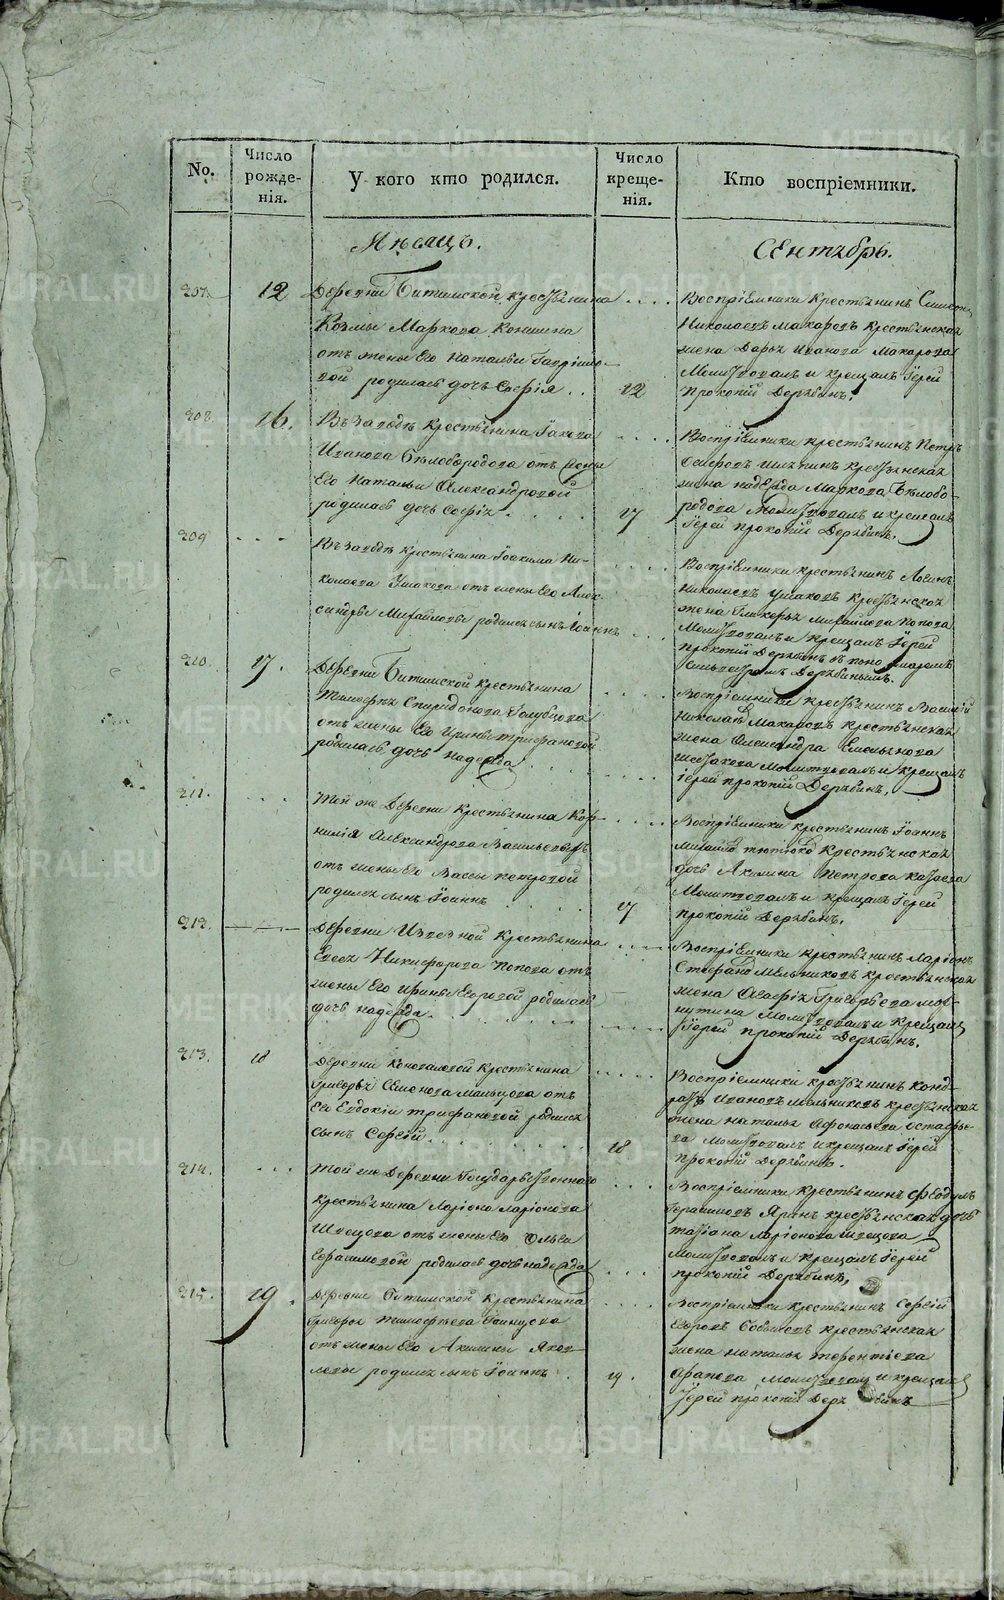 No.
Число рожде-нія.
У кого кто родился.
Число креще-нія.
Кто воспріемники.
Мѣсяцъ.
Сентябрь.
207.
12
Деревни Битимской крестьянина
Козмы Маркова
отъ жены Его Натальи
родилась дочь Софія
12
Воспріемники крестьянинъ
Николаевъ Макаровъ крестьянская
жена Дарья Иванова Макарова
Молитвовалъ и крещалъ Іерей
Прокопій Дерябинъ.
208.
16.
Въ заводѣ крестьянина Іакова
Иванова Бѣлобородова отъ жены
Его Натальи Александровой
родилась дочь Софія
17
Воспріемники крестьянинъ Петръ
крестьянская
жена надежда Маркова Бѣлобо-
родова Молитвовалъ и крещалъ
Іерей прокопій Дерябинъ.
209
Въ заводѣ крестьянина Іоакима Ни-
колаева Ушакова отъ жены Его Алек-
сандры Михайловы родился сынъ Іоаннъ
Воспріемники крестьянинъ
Николаевъ Ушаковъ крестьянская
жена Гликерья Михайлова Попова
Молитвовалъ и крещалъ Іерей
прокопій Дерябинъ съ пономаремъ
Дерябинымъ.
210.
17.
Деревни Битимской крестьянина
Тимофѣя Спиридонова Голубцова
отъ жены Его Ирины трифановой
родилась дочь надежда
Воспріемники крестьянинъ Василій
Николаевъ Макаровъ крестьянская
жена Александра Емельянова
молитвовалъ и крещалъ
іерей прокопій Дерябинъ.
211.
Той же Деревни Крестьянина Кор-
нилія Александрова
отъ жены Его Вассы петровой
родился сынъ Іоаннъ
17
Воспріемники крестьянинъ Іоаннъ
крестьянская
дочь Акилина Петрова
Молитвовалъ и крещалъ Іерей
прокопій Дерябинъ.
212.
Деревни Извезной Крестьянина
Никифорова Попова отъ
жены Его Ирины Егоровой родилась
дочь надежда.
Воспріемники крестьянинъ Ларіонъ
Мельниковъ крестьянская
жена Григорьева
Молитвовалъ и Крещалъ
Іерей прокопій Дерябинъ.
213.
18
Деревни Коноваловой крестьянина
Григорья Семенова Мальцова отъ
Евдокіи трифановой родился
сынъ Сергій.
18
Воспріемники крестьянинъ Конд-
ратъ Ивановъ Мельниковъ крестьянская
жена наталья
Молитвовалъ и крещалъ Іерей
прокопій Дерябинъ.
214.
той же Деревни Государственнаго
крестьянина Ларіона Ларіонова
Швецова отъ жены Его
Герасимовой родилась дочь надежда
Воспріемники крестьянинъ Феодулъ
Герасимовъ крестьянская дочь
татіана Ларіонова швецова
Молитвовалъ и крещалъ Іерей
прокопій Дерябинъ,
215.
19
Деревни Битимской крестьянина
Григорья тимофѣева
отъ жены Его Акилины Яков-
левы родился сынъ Іоаннъ
19.
Воспріемники крестьянинъ Сергій
Егоровъ крестьянская
жена наталья терентіева
молитвовалъ и крещалъ
Іерей прокопій Дерябинъ
METRIKI.GASO-URAL.RU